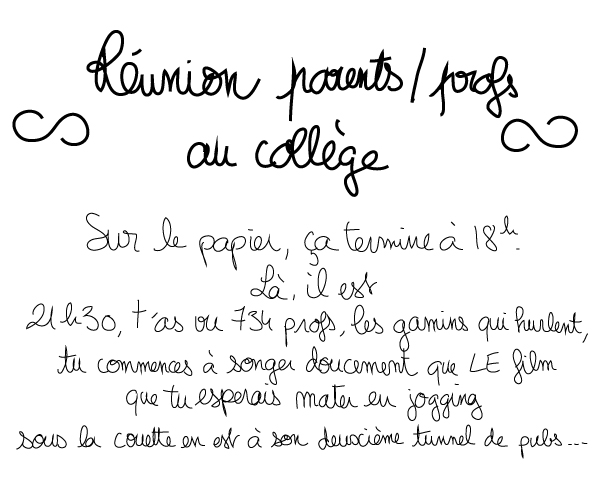 Réunion parents/profs
au collège
Sur le papier, ça termine à 18h.
Là, il est
21h30, t'as vu 734 profs, les gamins qui hurlent,
tu commences à songer doucement que LE film
que tu esperais mater en jogging
sous la couette en est à son deuxième tunnel de pubs...